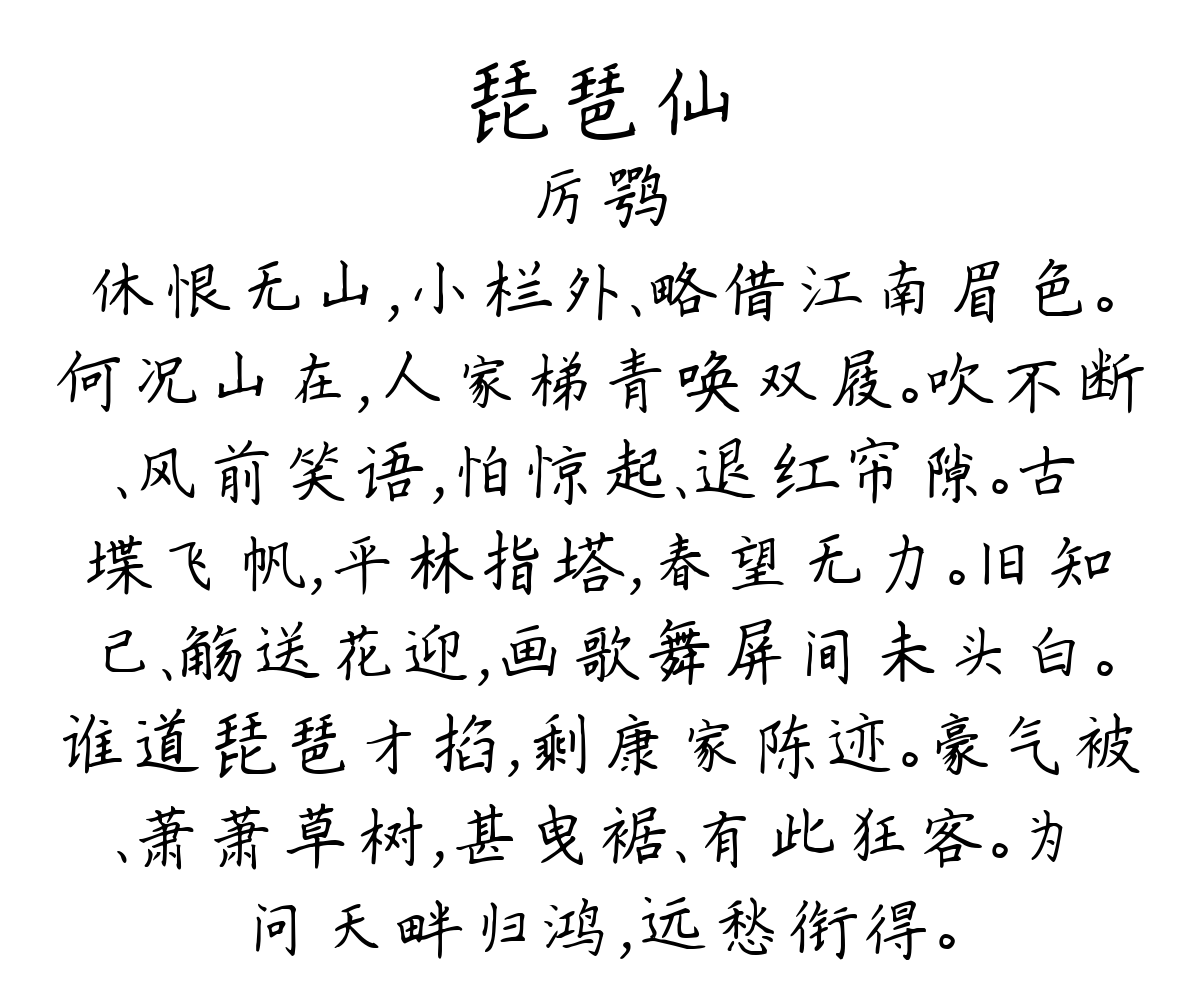 琵琶仙
厉鹗
休恨无山,小栏外、略借江南眉色。
何况山在,人家梯青唤双屐。吹不断
、风前笑语,怕惊起、退红帘隙。古
堞飞帆,平林指塔,春望无力。旧知
己、觞送花迎,画歌舞屏间未头白。
谁道琵琶才掐,剩康家陈迹。豪气被
、萧萧草树,甚曳裾、有此狂客。为
问天畔归鸿,远愁衔得。